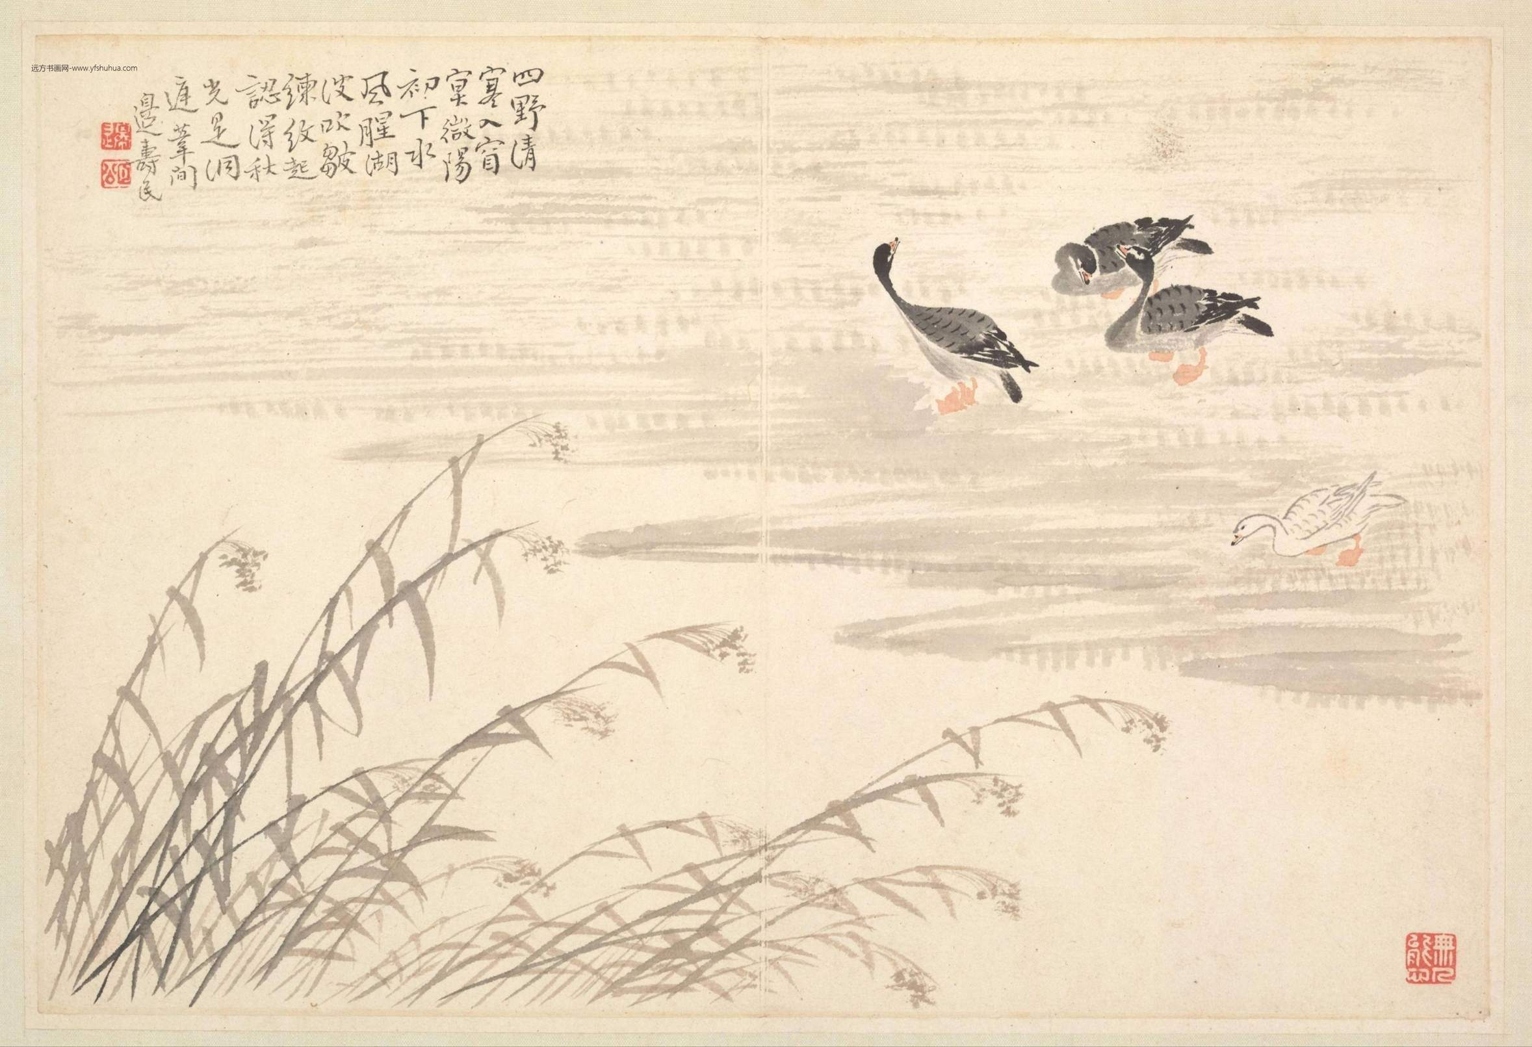 四野清
寒入窅
冥微陽
初下水
風腥湖
波吹皺
練紋起
認得秋
光是洞
庭葦間
邊壽民
远方书画网-www.yfshuhua.com